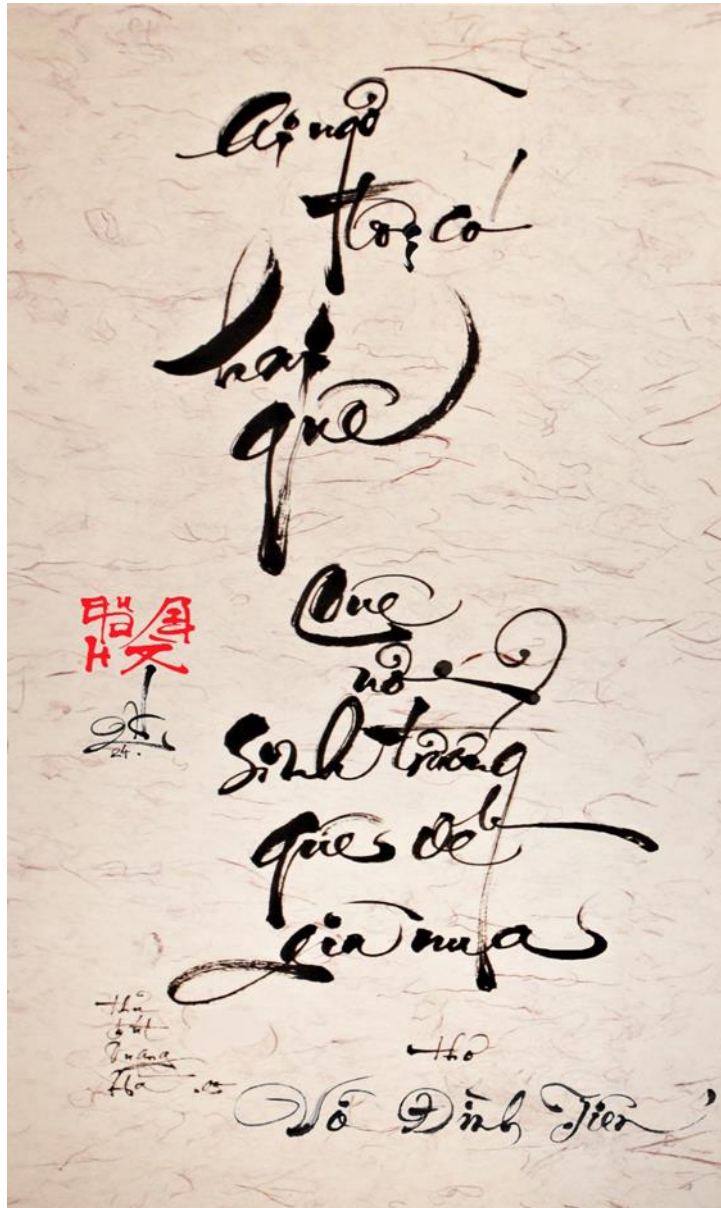 Ai ngờ
tôi có
hai
quê
Quê
nơi
sinh trưởng
quê về
già nua
24.
thủ
bút
thơ
Võ Đình Tiến